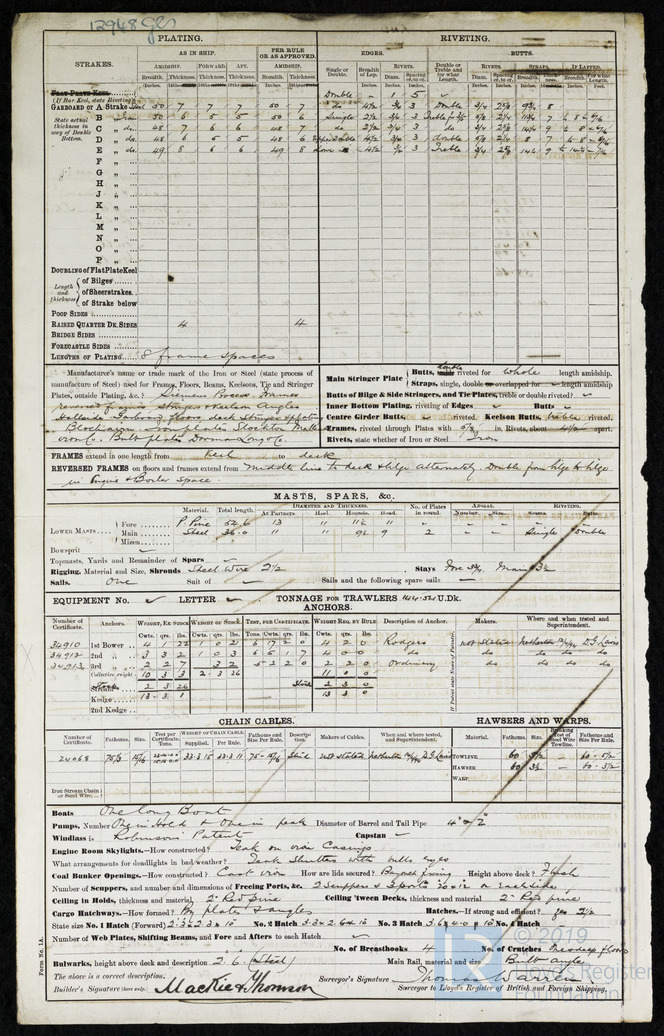 12948 gls
PLATING. RIVETING.
AS IN SHIP. PER RULE OR AS APPROVED. EDGES. BUTTS.
STRAKES. AMIDSHIP. FORWARD. AFT. AMIDSHIP. Single or Double. Breadth of Lap. RIVETS. Double or Treble and for what Length. RIVETS. STRAPS. IF LAPPED.
Breadth. Thickness. Thickness. Thickness. Breadth. Thickness. Diam. Spacing cr. to cr. Diam. Spacing cr. to cr. Breadth. Thickness. Breadth. For what Length.
FLAT PLATE KEEL Double 1 5
(If Bar Keel, state Riveting)
GARBOARD or A Strake 50 7 7 7 50 7 do 4½ ¾ 3 Double ¾ 8
State actual thickness in way of Double Bottom.
B 50 6 5 5 50 6 Single 2½ ¾ 3 7
C do. 48 7 6 6 48 7 do 2½ ¾ 3 do 9
D do. 48 6 5 5 48 6 3 double 8 7
E do. 49 8 6 6 49 8 3 Treble 9
F
G
H
J
K
L
M
N
O
P
DOUBLING of Flat Plate Keel
Length and thickness of Bilges
of Sheerstrakes
of Strake below
POOP SIDES
RAISED QUARTER DK. SIDES 4 4
BRIDGE SIDES
FORECASTLE SIDES
LENGTHS OF PLATING 8 frame spaces
Manufacturer's name or trade mark of the Iron or Steel (state process of manufacture of Steel) used for Frames, Floors, Beams, Keelsons, Tie and Stringer Plates, outside Plating, &c.? Siemens Process. Frames
reversed frames stringer & keelson angles
Blochairn. Iron plates Stockton Malleable
iron Co. Bulb plates Dorman Long & Co.
Main Stringer Plate Butts, double riveted for whole length amidship.
Straps, single, double or overlapped for length amidship
Butts of Bilge & Side Stringers, and Tie Plates, treble or double riveted?
Inner Bottom Plating, riveting of Edges Butts
Centre Girder Butts, riveted. Keelson Butts, treble riveted.
Frames, riveted through Plates with 5/8 in Rivets, about 4½ apart.
Rivets, state whether of Iron or Steel Iron
FRAMES extend in one length from Keel to deck
REVERSED FRAMES on floors and frames extend from Middle line to deck & bilge alternately. Double from bilge to bilge
in Engine & Boiler space.
MASTS, SPARS, &c.
Material. Total length. DIAMETER AND THICKNESS. At Partners. Heel. Hounds. Head. No. of Plates in round. ANGLES. Number. Size. RIVETING. Seams. Butts.
LOWER MASTS Fore P. Pine 52.6 13 11 11½ 11
Main Steel 36.0 11 11 9½ 9 2 Single Double
Mizen
Bowsprit
Topmasts, Yards and Remainder of Spars
Rigging, Material and Size, Shrouds Steel Wire 2½ Stays Fore 3¼ Main 3½
Sails. One Suit of Sails and the following spare sails
EQUIPMENT No. LETTER TONNAGE FOR TRAWLERS 144.52 U.Dk.
ANCHORS.
Number of Certificate. Anchors. WEIGHT, EX STOCK WEIGHT OF STOCK. TEST, PER CERTIFICATE. WEIGHT REQ. BY RULE Description of Anchor. Makers. Where and when tested and Superintendent.
Cwts. qrs. lbs. Cwts. qrs. lbs. Tons. Cwts. qrs. lbs. Cwts. qrs. lbs.
34910 1st Bower 4 1 22 1 0 21 6 17 2 0 4 2 0 Rodgers not stated Netherton D. G. Lewis
34912 2nd 3 3 2 1 0 3 6 5 1 7 4 0 0 do do do do
34913 3rd 2 2 7 3 2 5 2 2 0 2 2 0 Ordinary do do do
Collective weight 10 3 3 2 3 26 11 0 0
Stream 2 3 26 Stock 2 3 0
Kedge 13 3 1 13 3 0
2nd Kedge
If Patent state Name of Patentee.
CHAIN CABLES. HAWSERS AND WARPS.
Number of Certificate. Fathoms. Size. Test per Certificate. Tons. WEIGHT OF CHAIN CABLE. Supplied. Per Rule. Fathoms and Size Per Rule. Description. Makers of Cables. When and where tested, and Superintendent. Material. Fathoms. Size. Breaking Test of Steel Wire Towline. Fathoms and Size Per Rule.
24068 75/8 15/16 33.2.15 33.2.11 75-15/16 Stud not stated Netherton D. G. Lewis TOWLINE 60 5½ 60-5½
HAWSER 60 3½ 60-3½
WARP
Iron Stream Chain or Steel Wire
Boats One long Boat
Pumps, Number One in Hold & One in peak Diameter of Barrel and Tail Pipe 4" & 2"
Windlass is Robinsons' Patent Capstan
Engine Room Skylights.—How constructed? Teak on iron Casings
What arrangements for deadlights in bad weather? Teak Shutters with bulls eyes
Coal Bunker Openings.—How constructed? Cast iron How are lids secured? Bayonet fixing Height above deck? Flush
Number of Scuppers, and number and dimensions of Freeing Ports, &c. 2 Scuppers & 3 ports 20 x 12 on Each side
Ceiling in Holds, thickness and material 2" Red Pine Ceiling 'tween Decks, thickness and material 2" Red pine
Cargo Hatchways.—How formed? By plates & angles Hatches.—If strong and efficient? yes 2½
State size No. 1 Hatch (Forward) 2.3 x 2.3 x 15" No. 2 Hatch 3.3 x 2.6 x 15 No. 3 Hatch 3.6 x 4.0 x 15 No. 4 Hatch
Number of Web Plates, Shifting Beams, and Fore and Afters to each Hatch
No. of Breasthooks 4 No. of Crutches Treodeep floors
Bulwarks, height above deck and description 2.6. (Steel) Main Rail, material and size Bulb angles
The above is a correct description.
Builder's Signature (here only.) Mackie & Thomson Surveyor's Signature Thomas Warren
Surveyor to Lloyd's Register of British and Foreign Shipping.
Form No. 1A.
© 2019
Lloyd's Register
Foundation